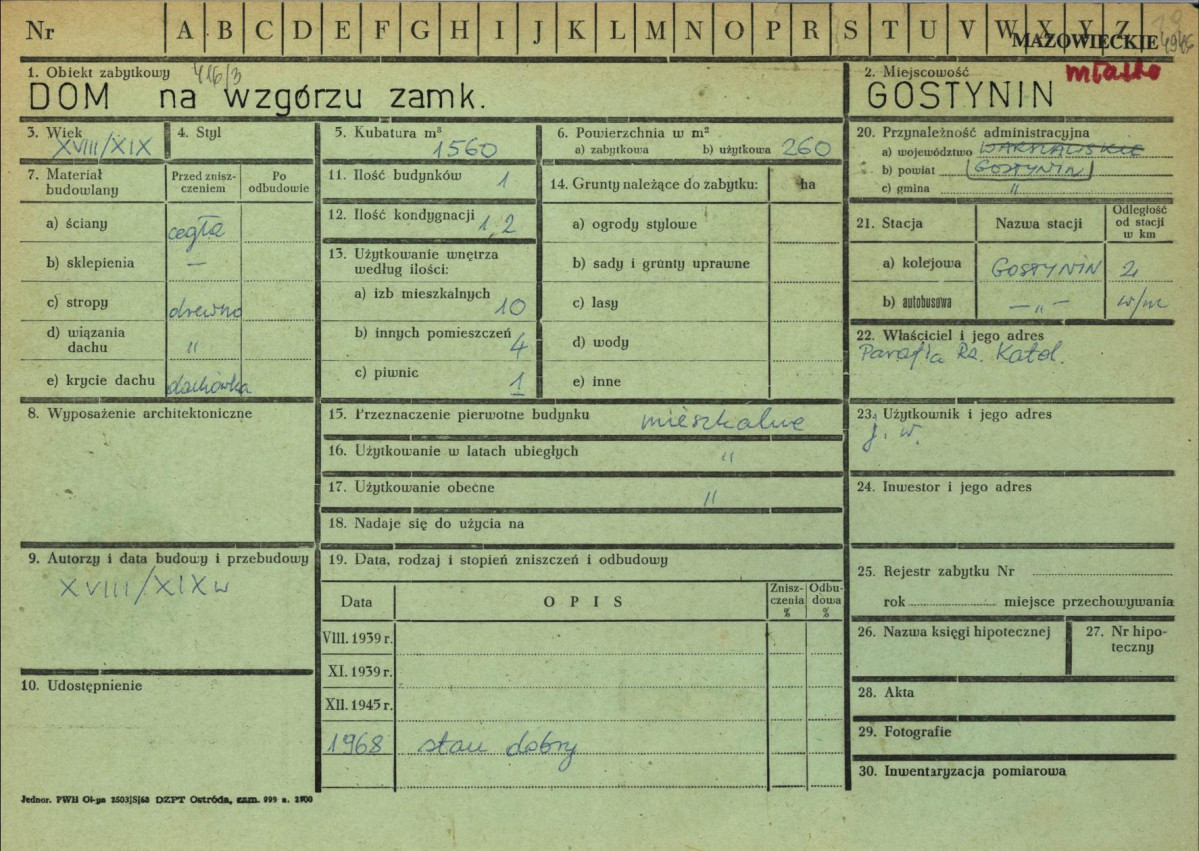 Nr A B C D E F G H I J K L M N O P R S T U V W X Y Z
MAZOWIECKIE
miasto
1. Obiekt zabytkowy 416/3
DOM na wzgórzu zamk.
2. Miejscowość
GOSTYNIN
3. Wiek
XVIII/XIX
4. Styl
5. Kubatura m³
1560
6. Powierzchnia w m²
a) zabytkowa b) użytkowa 260
7. Materiał budowlany
Przed zniszczeniem
Po odbudowie
a) ściany cegła
b) sklepienia —
c) stropy drewno
d) wiązania dachu "
e) krycie dachu dachówka
8. Wyposażenie architektoniczne
9. Autorzy i data budowy i przebudowy
XVIII/XIX w
10. Udostępnienie
11. Ilość budynków 1
12. Ilość kondygnacji 1,2
13. Użytkowanie wnętrza
według ilości:
a) izb mieszkalnych 10
b) innych pomieszczeń 4
c) piwnic 1
14. Grunty należące do zabytku: ha
a) ogrody stylowe
b) sady i grunty uprawne
c) lasy
d) wody
e) inne
15. Przeznaczenie pierwotne budynku mieszkalne
16. Użytkowanie w latach ubiegłych "
17. Użytkowanie obecne "
18. Nadaje się do użycia na
19. Data, rodzaj i stopień zniszczeń i odbudowy
Data OPIS Zniszczenia % Odbudowa %
VIII. 1939 r.
XI. 1939 r.
XII. 1945 r.
1968 stan dobry
20. Przynależność administracyjna
a) województwo WARSZAWSKIE
b) powiat GOSTYNIN
c) gmina "
21. Stacja Nazwa stacji Odległość od stacji w km
a) kolejowa GOSTYNIN 2
b) autobusowa — " — w/m
22. Właściciel i jego adres
Parafia Rz. Katol.
23. Użytkownik i jego adres
j. w.
24. Inwestor i jego adres
25. Rejestr zabytku Nr
rok miejsce przechowywania
26. Nazwa księgi hipotecznej
27. Nr hipoteczny
28. Akta
29. Fotografie
30. Inwentaryzacja pomiarowa
Jednor. PWH Ol-yn 2503/S/68 DZPT Ostróda, zam. 999 n. 2100